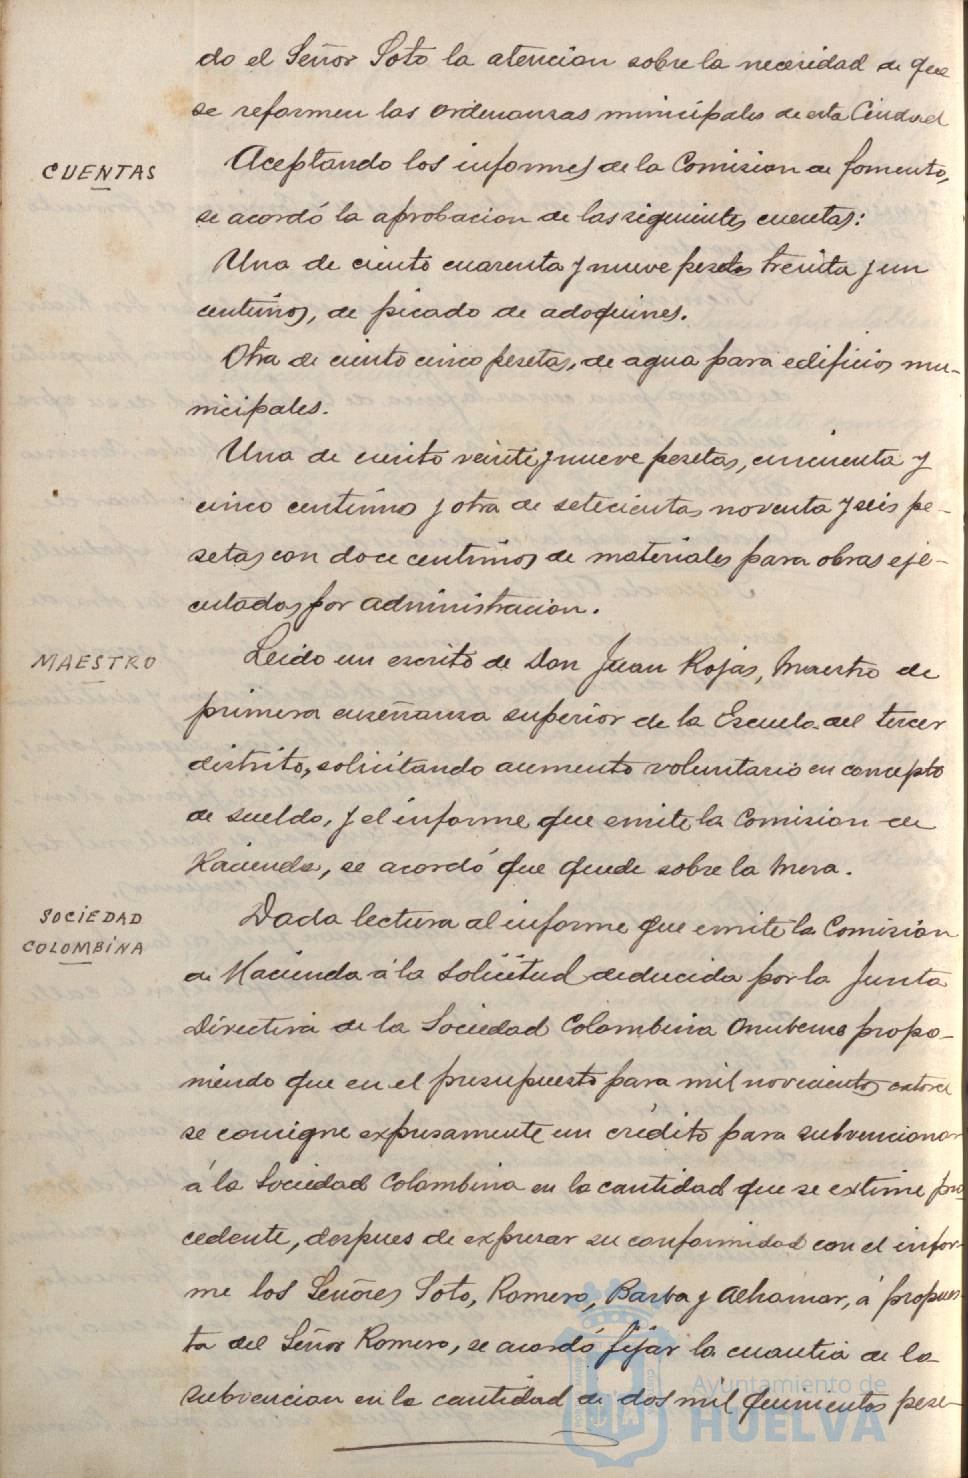 do el Señor Soto la atencion sobre la necesidad de que
se reformen las ordenanzas municipales de esta Ciudad
CUENTAS
Aceptando los informes de la Comision de fomento,
se acordó la aprobacion de las siguientes cuentas:
Una de ciento cuarenta y nueve pesetas treinta y un
centimos, de picado de adoquines.
Otra de ciento cinco pesetas, de agua para edificios mu-
nicipales.
Una de ciento veinte y nueve pesetas, cincuenta y
cinco centimos y otra de setecientas noventa y seis pe-
setas con doce centimos de materiales para obras eje-
cutadas por administracion.
MAESTRO
Leido un escrito de Don Juan Rojas, Maestro de
primera enseñanza superior de la Escuela del tercer
distrito, solicitando aumento voluntario en concepto
de sueldo, y el informe que emite la Comision de
Hacienda, se acordó que quede sobre la Mesa.
SOCIEDAD
COLOMBINA
Dada lectura al informe que emite la Comision
de Hacienda á la solicitud deducida por la Junta
Directiva de la Sociedad Colombina Onubense propo-
niendo que en el presupuesto para mil novecientos catorce
se consigne expresamente un crédito para subvencionar
á la Sociedad Colombina en la cantidad que se extime pro
cedente, despues de expresar su conformidad con el infor-
me los Señores Soto, Romero, Barba y Alhamar, á propues-
ta del Señor Romero, se acordó fijar la cuantia de la
subvencion en la cantidad de dos mil quinientos pese-
Ayuntamiento de
HUELVA